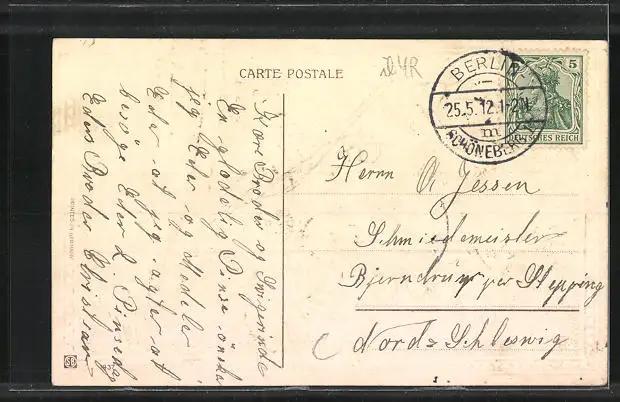 CARTE POSTALE
BERLIN
25.5.12.1-2N.
m
SCHÖNEBERG
5
DEUTSCHES REICH
Kære Broder og Svigerinde
En glædelig Pinse önsker
jeg Eder og Meddeler
Eder at jeg agter at
besøge Eder 2. Pinsedag
Eders Broder Christian
Herrn A Jessen
Schmiedemeister
Bjerndrup per Stepping
Nord=Schleswig
PRINTED IN GERMANY